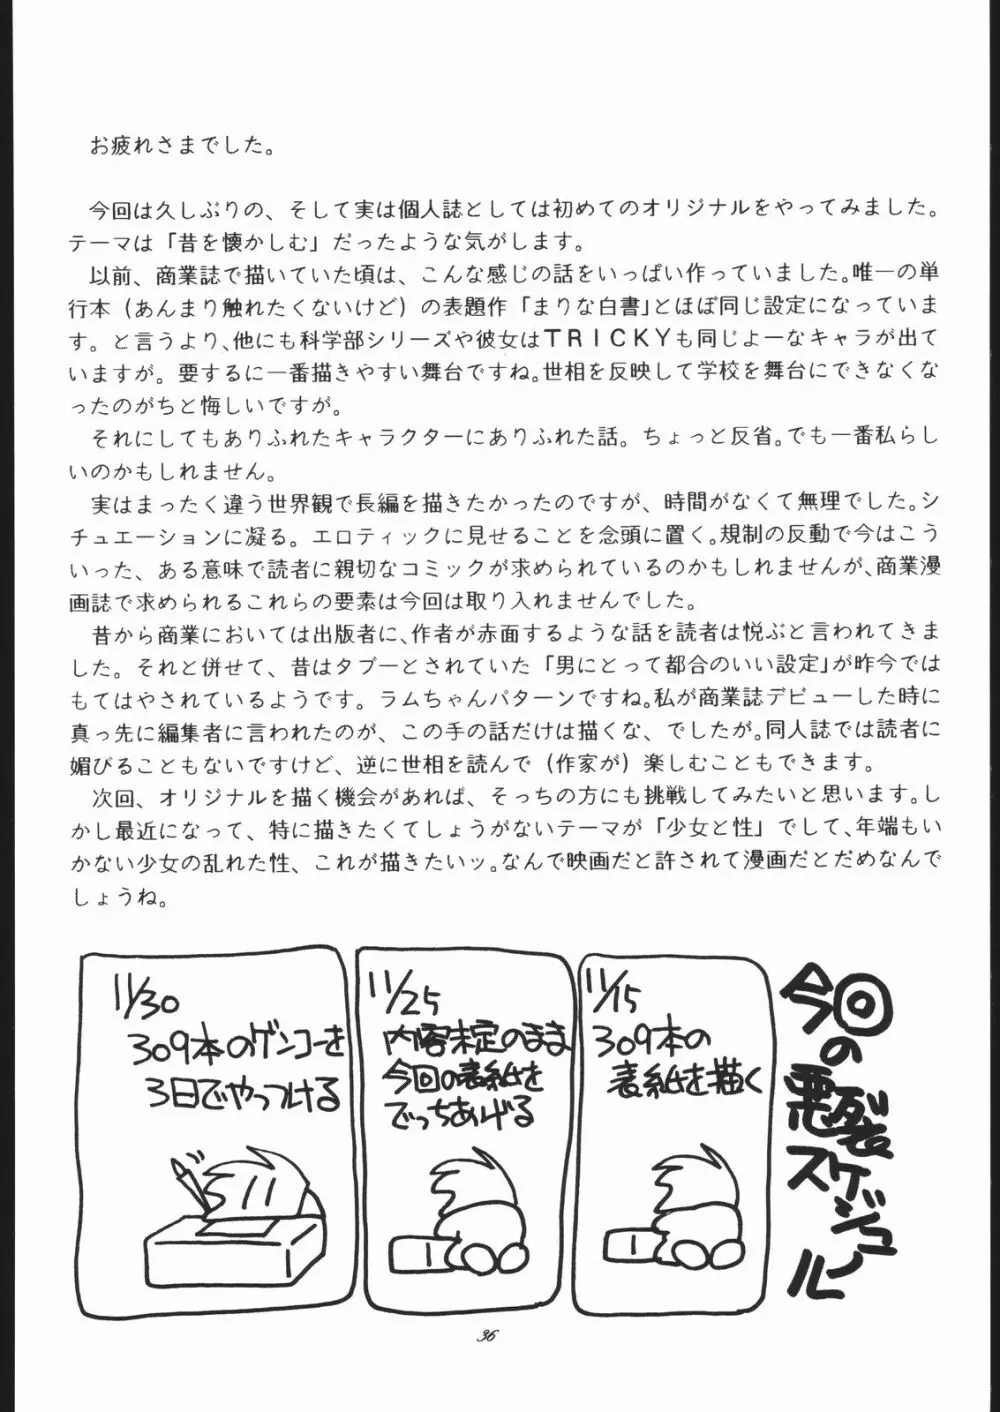 お疲れさまでした。
今回は久しぶりの、そして実は個人誌としては初めてのオリジナルをやってみました。
テーマは「昔を懐かしむ」だったような気がします。
以前、商業誌で描いていた頃は、こんな感じの話をいっぱい作っていました。唯一の単
行本（あんまり触れたくないけど）の表題作「まりな白書」とほぼ同じ設定になっていま
す。と言うより、他にも科学部シリーズや彼女はＴＲＩＣＫＹも同じよーなキャラが出て
いますが。要するに一番描きやすい舞台ですね。世相を反映して学校を舞台にできなくな
ったのがちと悔しいですが。
それにしてもありふれたキャラクターにありふれた話。ちょっと反省。でも一番私らし
いのかもしれません。
実はまったく違う世界観で長編を描きたかったのですが、時間がなくて無理でした。シ
チュエーションに凝る。エロティックに見せることを念頭に置く。規制の反動で今はこう
いった、ある意味で読者に親切なコミックが求められているのかもしれませんが、商業漫
画誌で求められるこれらの要素は今回は取り入れませんでした。
昔から商業においては出版者に、作者が赤面するような話を読者は悦ぶと言われてきま
した。それと併せて、昔はタブーとされていた「男にとって都合のいい設定」が昨今では
もてはやされているようです。ラムちゃんパターンですね。私が商業誌デビューした時に
真っ先に編集者に言われたのが、この手の話だけは描くな、でしたが。同人誌では読者に
媚びることもないですけど、逆に世相を読んで（作家が）楽しむこともできます。
次回、オリジナルを描く機会があれば、そっちの方にも挑戦してみたいと思います。し
かし最近になって、特に描きたくてしょうがないテーマが「少女と性」でして、年端もい
かない少女の乱れた性、これが描きたいッ。なんで映画だと許されて漫画だとだめなんで
しょうね。
今回
の
悪裂
スケジュール
11/15
309本の
表紙を描く
11/25
内容未定のまま
今回の表紙を
でっちあげる
11/30
309本のゲンコーを
3日でやっつける
36